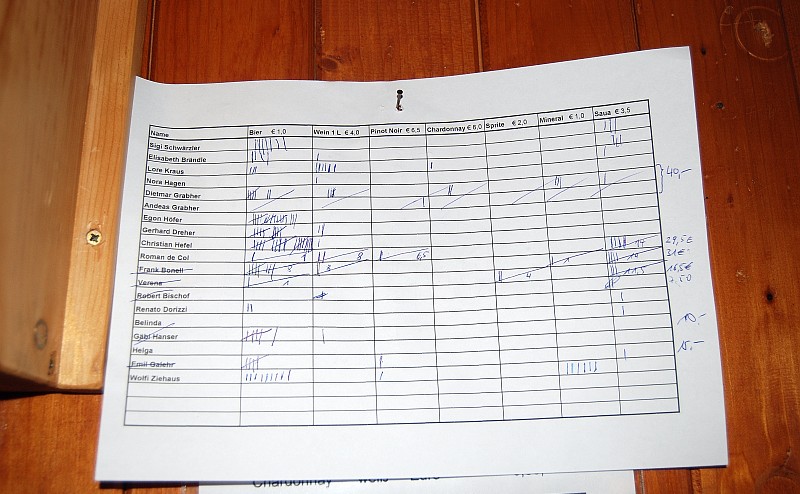 Name Bier € 1,0 Wein 1 L € 4,0 Pinot Noir € 6,5 Chardonnay € 6,0 Sprite € 2,0 Mineral € 1,0 Saua € 3,5
Sigi Schwärzler
Elisabeth Brändle
Lore Kraus
Nora Hagen
Dietmar Grabher
Andeas Grabher
40,-
Egon Höfer
Gerhard Dreher
Christian Hefel
Roman de Col 1 8 6,5 14 29,5€
Frank Bonell 8 8 1 31€
Verena 1 4 11,5 16,5€
Robert Bischof
Renato Dorizzi
Belinda
Gabi Hanser 10.-
Helga
Emil Galehr 15.-
Wolfi Ziehaus
Chardonnay